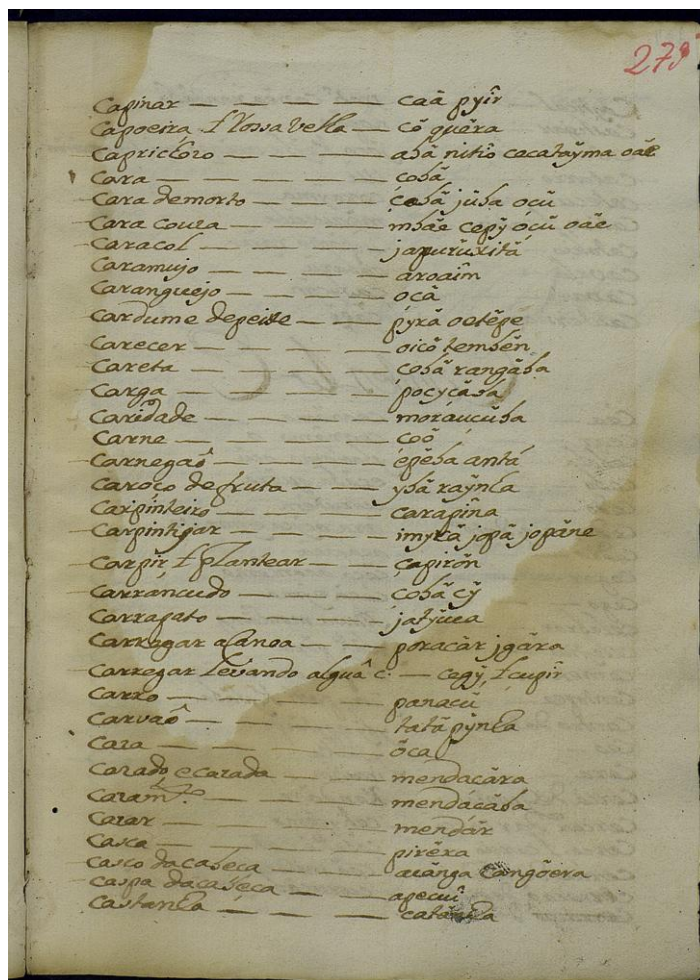 279
Capinar — — — — caã pyĩr
Capoeira ł Rossa velha — cõ quẽra
Caprichozo — — — — abã nitiõ cecatãyma oãe
Cara — — — — cobã
Cara de morto — — — cobã jũba ocũ
Cara couza — — — — mbãe cepỹ ócũ oãe
Caracol — — — — japuruxitã
Caramujo — — — — aroaĩm
Caranguejo — — — — ocã
Cardume de peixe — — pyrã oetẽpe
Carecer — — — — oicõ tembẽn
Careta — — — — cobã rangãba
Carga — — — — pocycãba
Caridade — — — — moraucũba
Carne — — — — coõ
Carnegaõ — — — — epẽba antá
Caroço de fruta — — — ybã raỹnha
Carpinteiro — — — — carapĩna
Carpintijar — — — — imyrã jopã jopãne
Carpir ł plantear — — — çapirõn
Carrancudo — — — — cobã cỹ
Carrapato — — — — jatỹuca
Carregar a Canoa — — poracãr jgãra
Carregar levando alguã c. — cegỹ ł cupĩr
Carro — — — — panacũ
Carvaõ — — — — tatã pỹnha
Caza — — — — õca
Cazado, e cazada — — — mendacãra
Cazam.to — — — — mendácãba
Cazar — — — — mendãr
Casca — — — — pirẽra
Casco da cabeça — — — acãnga cangõera
Caspa da cabeça — — — apecuĩ
Castanha — — — — catãnha